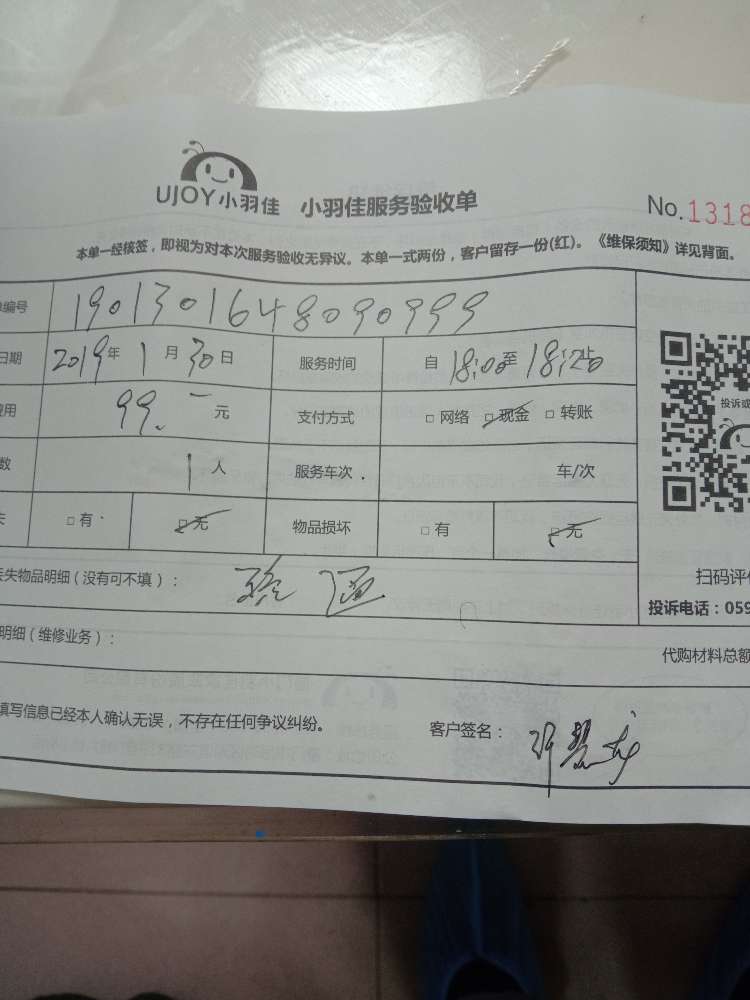 UJOY小羽佳 小羽佳服务验收单 No.1318
本单一经核签，即视为对本次服务验收无异议。本单一式两份，客户留存一份(红)。《维保须知》详见背面。
编号 1901301648090999
日期 2019年1月30日 服务时间 自18:00至18:20止
费用 99.一元 支付方式 □网络 □现金 □转账
数 1人 服务车次 车/次
失 □有 □无 物品损坏 □有 □无
丢失物品明细（没有可不填）： 疏通
明细（维修业务）：
填写信息已经本人确认无误，不存在任何争议纠纷。 客户签名：
投诉或
扫码评价
投诉电话：059
代购材料总额